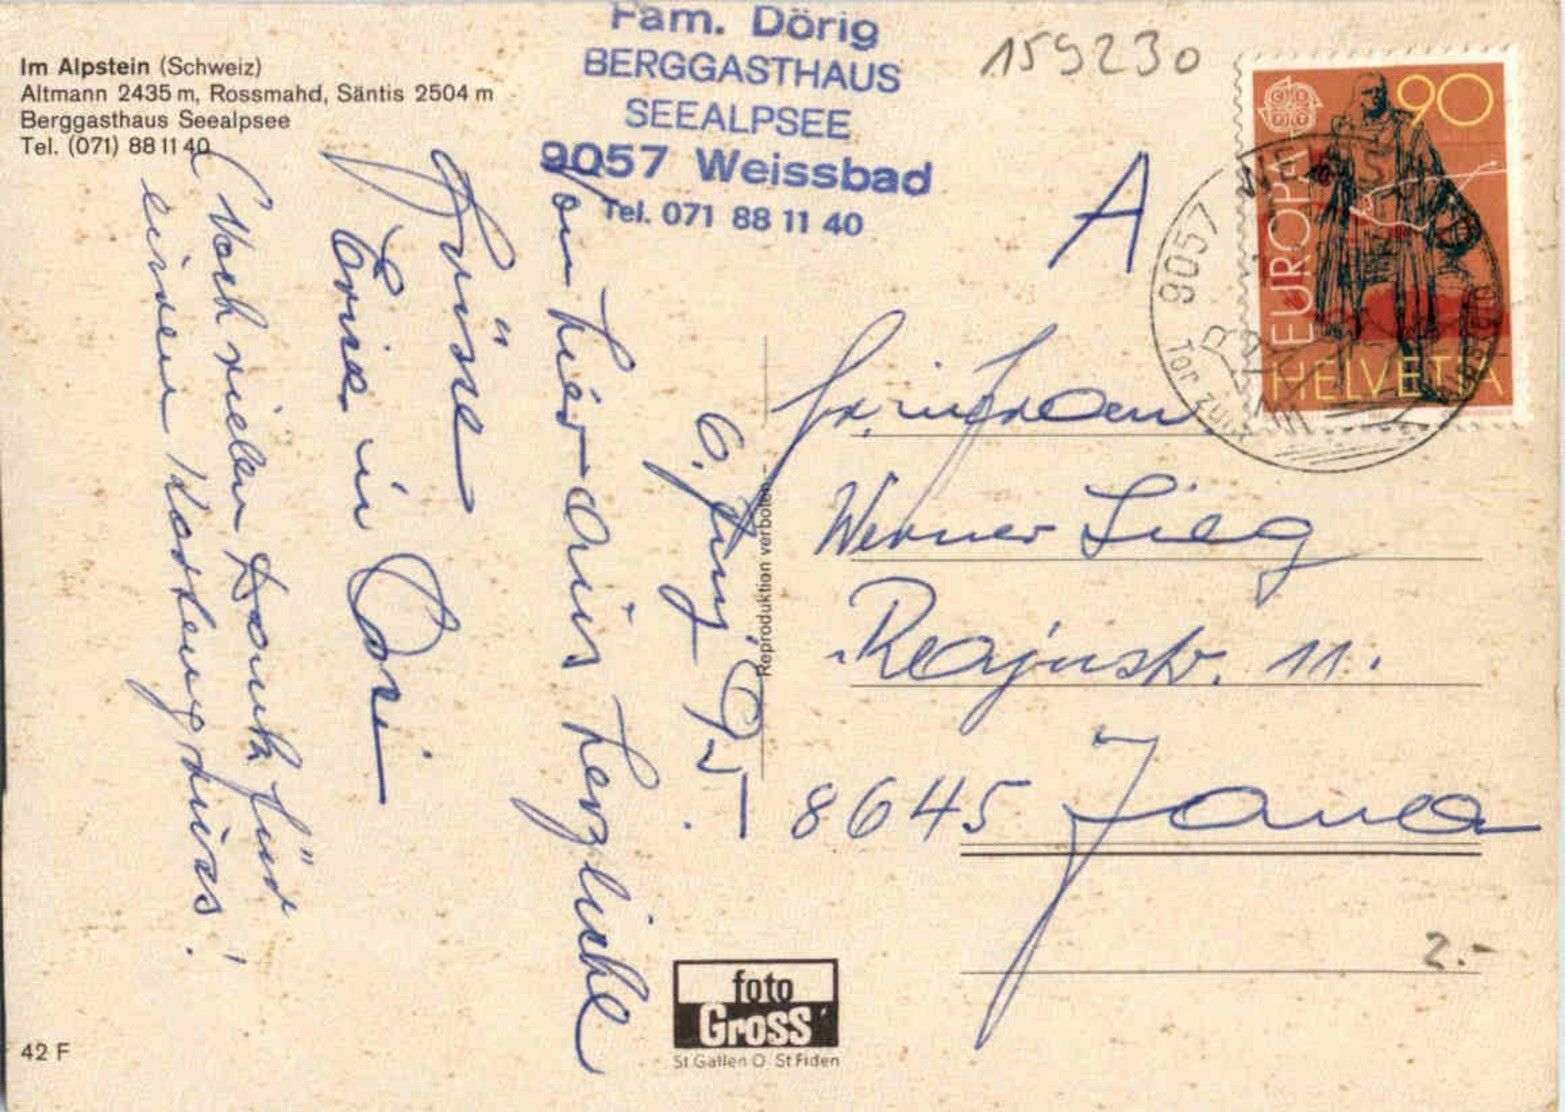 Im Alpstein (Schweiz)
Altmann 2435 m, Rossmahd, Säntis 2504 m
Berggasthaus Seealpsee
Tel. (071) 88 11 40
Fam. Dörig
BERGGASTHAUS
SEEALPSEE
9057 Weissbad
Tel. 071 88 11 40
159230
A
90
EUROPA
HELVETIA
9057
6.
92
Von hier aus herzliche
Grüsse
in
(Noch vielen Dank für
einen Kartengruss!
Reproduktion verboten
Werner Sieg
11.
8645 Jona
2.-
foto
Gross
St.Gallen O St.Fiden
42 F